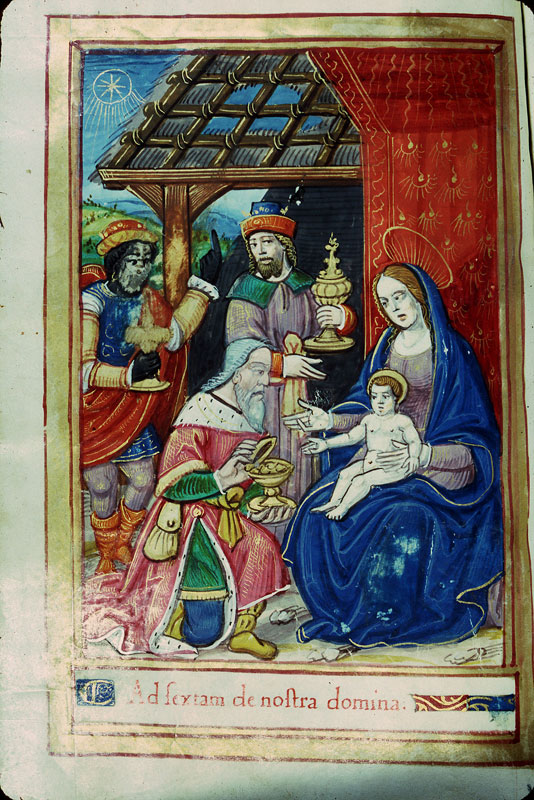 Ad sextam de nostra domina.